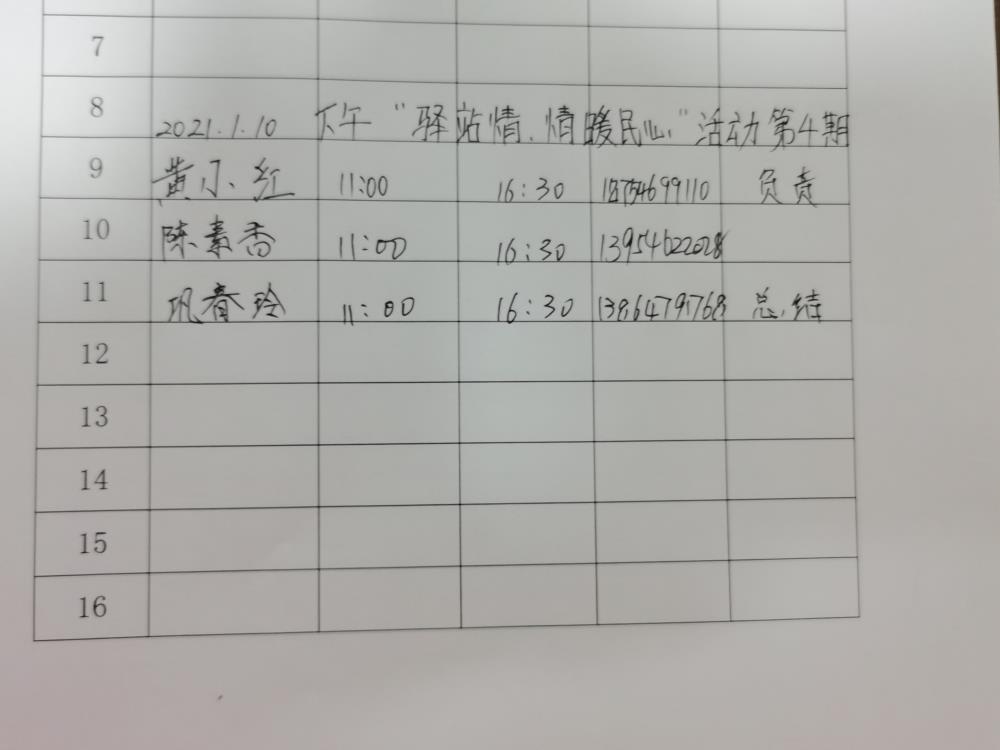 7
8 2021.1.10 下午 "驿站情、情暖民心" 活动第4期
9 黄小红 11:00 16:30 18754699110 负责
10 陈素香 11:00 16:30 13954622028
11 巩春玲 11:00 16:30 13864791768 总结
12
13
14
15
16